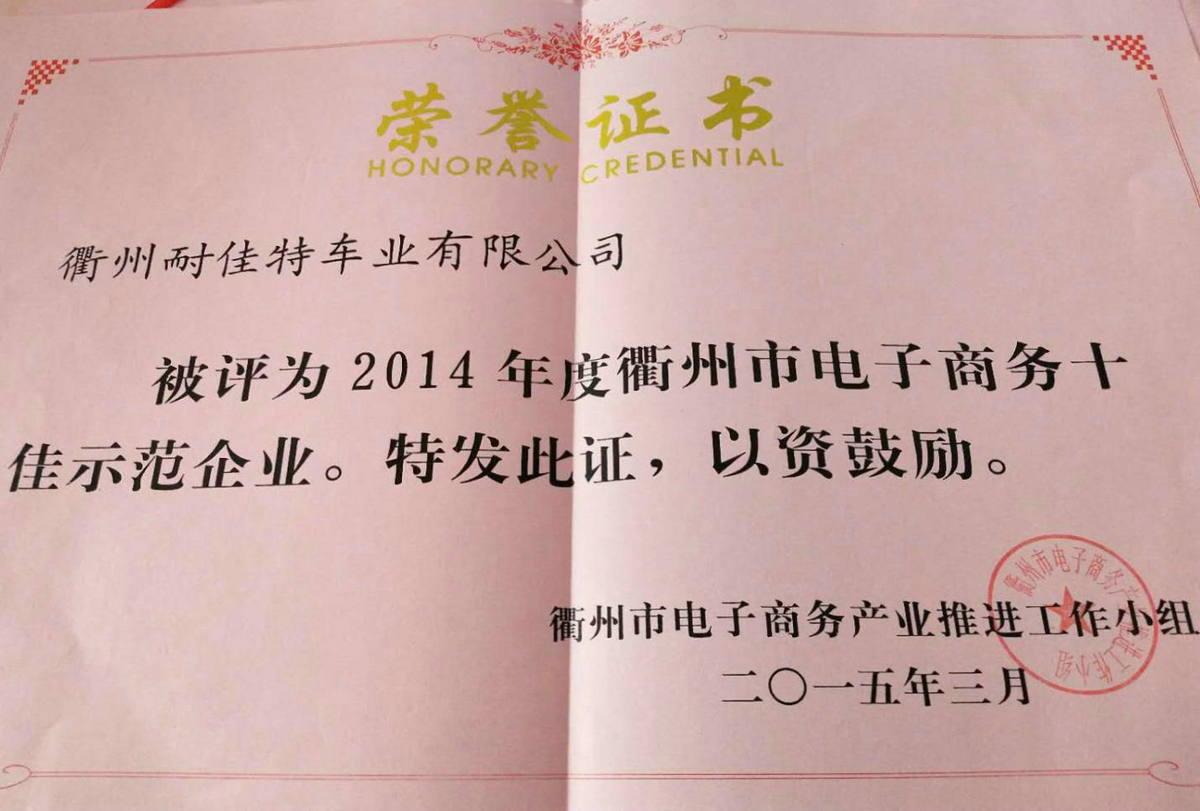 荣誉证书
HONORARY CREDENTIAL
衢州耐佳特车业有限公司
被评为2014年度衢州市电子商务十
佳示范企业。特发此证，以资鼓励。
衢州市电子商务产业推进工作小组
二〇一五年三月
衢州市电子商务产业推进工作小组